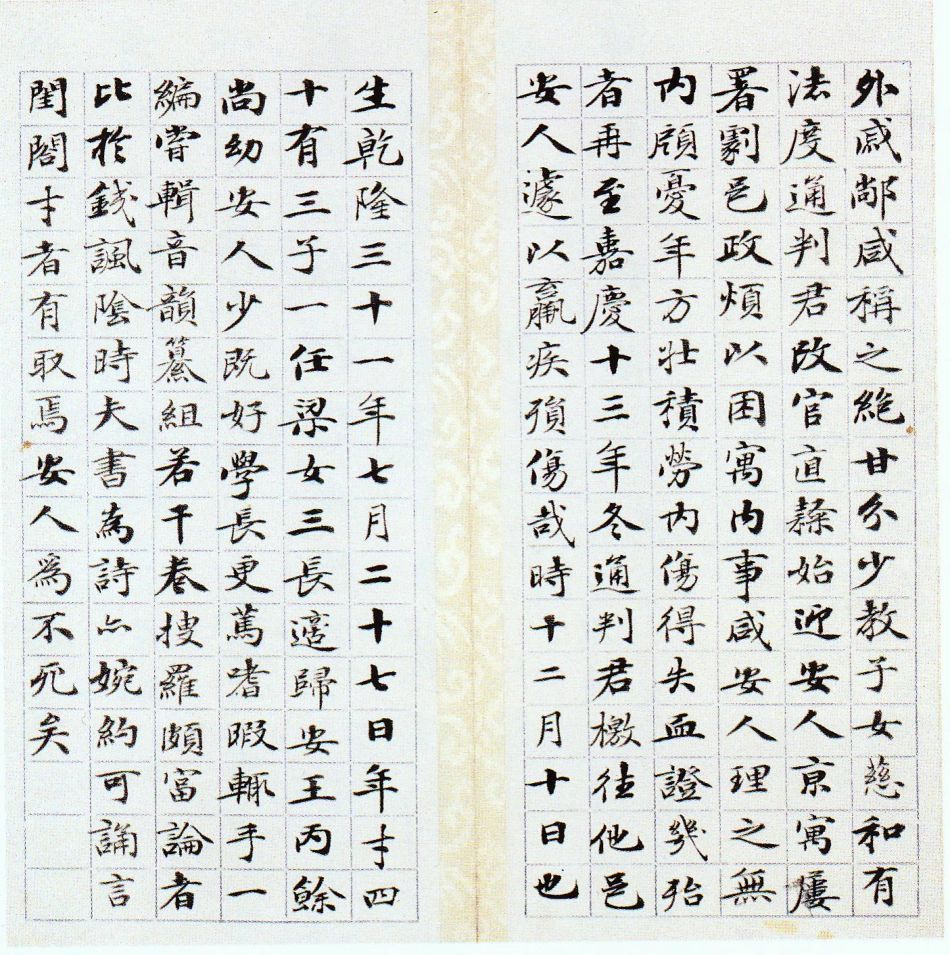 外戚鄰咸稱之絕甘分少教子女慈和有
法度通判君改官直隸始迎安人京寓屢
署劇邑政煩以困寓內事咸安人理之無
內顧憂年方壯積勞內傷得失血證幾殆
者再至嘉慶十三年冬通判君檄往他邑
安人遽以羸疾殞傷哉時十二月十日也
生乾隆三十一年七月二十七日年才四
十有三子一任梁女三長適歸安王丙餘
尚幼安人少既好學長更篤嗜暇輒手一
編嘗輯音韻纂組若干卷搜羅頗富論者
比於錢諷陰時夫書為詩亦婉約可誦言
閨閣才者有取焉安人為不死矣